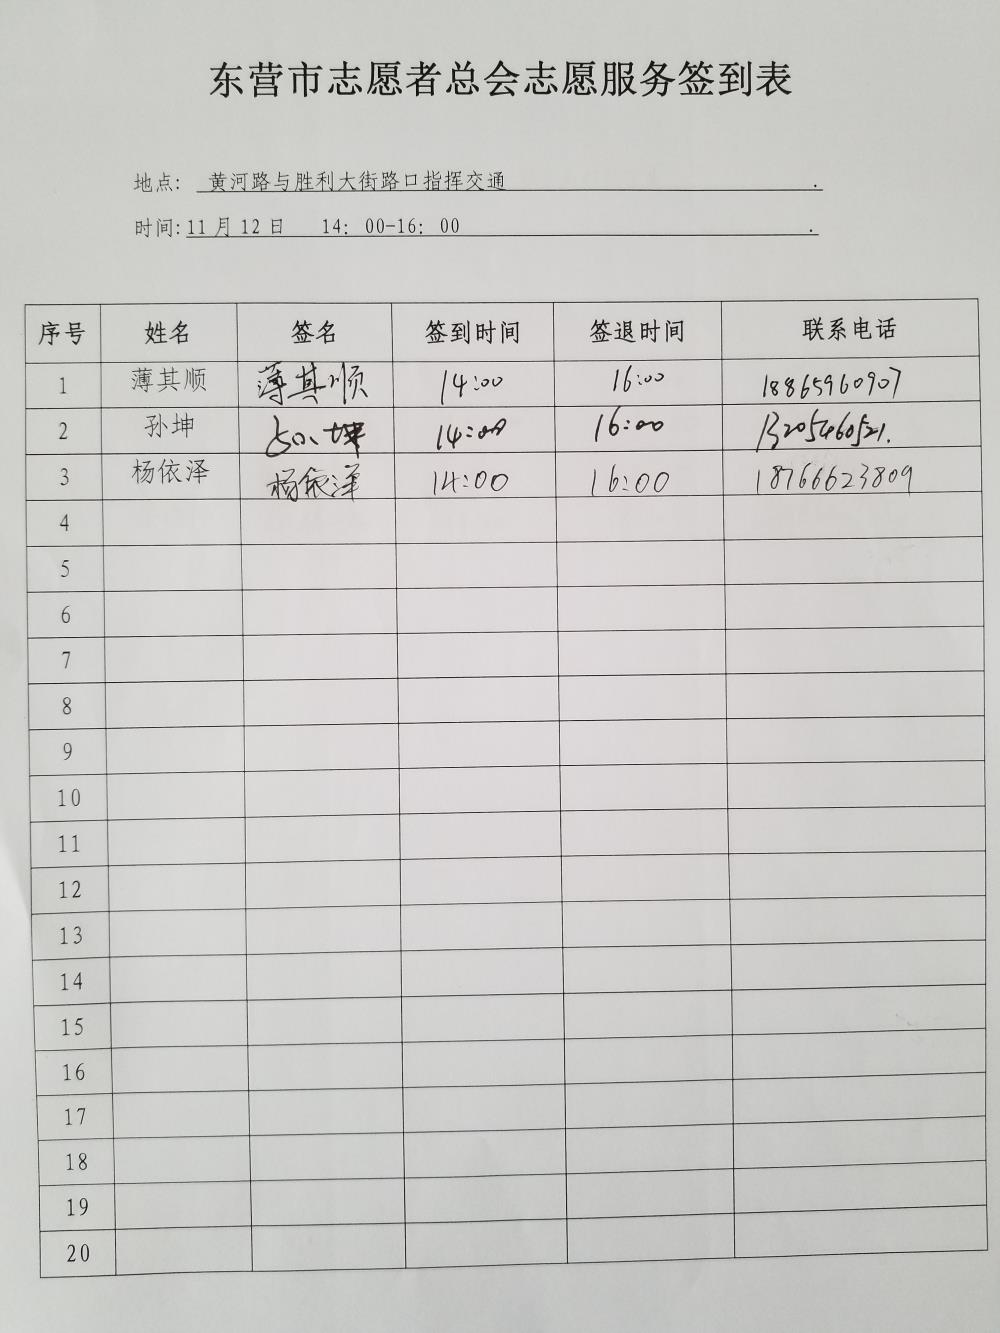 东营市志愿者总会志愿服务签到表
地点: 黄河路与胜利大街路口指挥交通 .
时间: 11月12日 14: 00-16: 00 .
序号 姓名 签名 签到时间 签退时间 联系电话
1 薄其顺 薄其顺 14:00 16:00 18865960907
2 孙坤 孙坤 14:00 16:00 13205460521.
3 杨依泽 杨依泽 14:00 16:00 18766623809
4
5
6
7
8
9
10
11
12
13
14
15
16
17
18
19
20